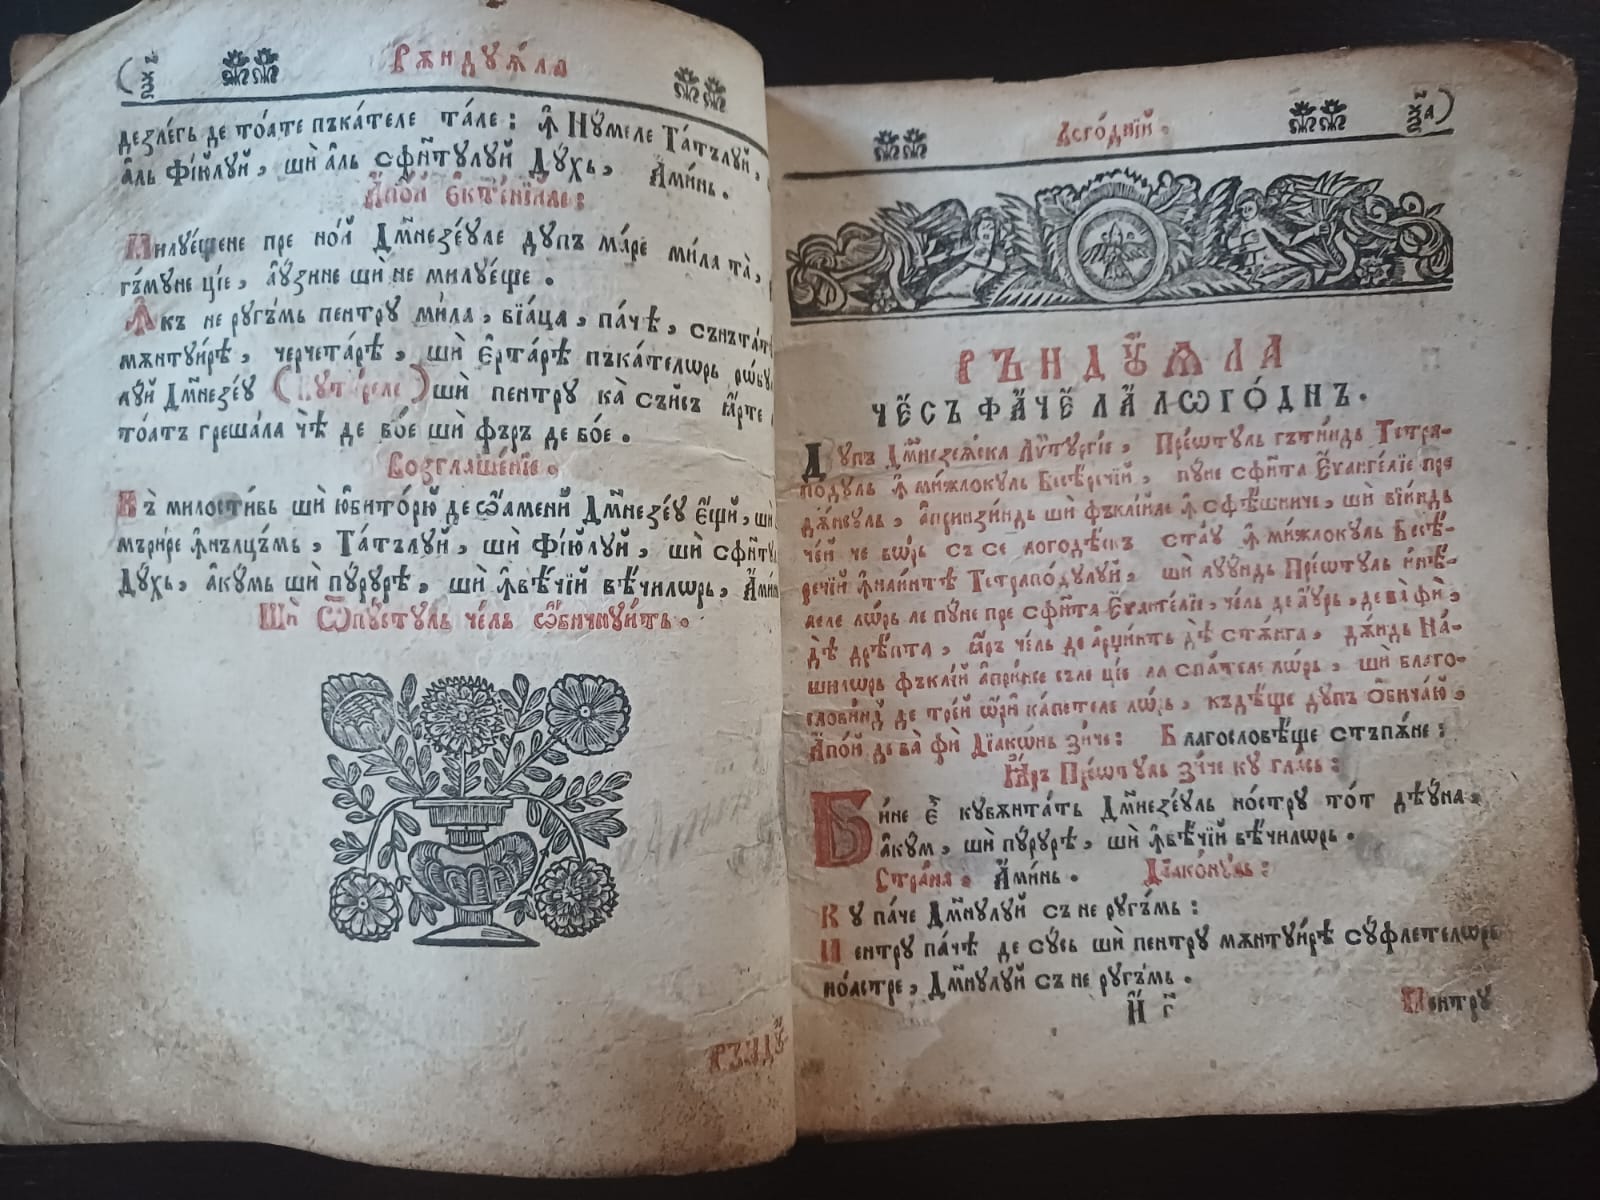 Рѫндꙋѧла
дезлѣгъ де тоате пъкателе тале: ꙟ Нꙋмеле Татълꙋй,
ал Фїюлꙋй, ши ал сфн҃тꙋлꙋй Дꙋхъ, Аминь.
Апой Єктенїиле:
Милꙋещене пре ной Дм҃незеꙋле дꙋпъ маре мила та,
гъмꙋне цїе, аꙋзине ши не милꙋеще.
Ꙟкъ не рꙋгъмь пентрꙋ мила, вїаца, паче, сънътат
мѫнтꙋирѣ, черчетарѣ, ши єртарѣ пъкателѡрь рѡбꙋ
лꙋй Дм҃незеꙋ
ши пентрꙋ ка съисъ ꙗрте
тоатъ грешала чѣ де вое ши фъръ де вое.
Возглашенїе.
Къ милостивь ши юбиторю де ѡамени Дм҃незеꙋ єщи, ши
мърире ꙟнълцъмь, Татълꙋй, ши Фїюлꙋй, ши сфн҃тꙋ
Дꙋхь, акꙋмь ши пꙋрꙋрѣ, ши ꙟвѣчїй вѣчилѡрь, Амин
Ши Ѿпꙋстꙋль чель ѡбичнꙋить.
Рънд꙽ꙋ
Логоднїй.
РЪНДꙊѦЛА
ЧЕСЪФАЧЕ ЛА ЛѠГОДНЪ.
Дꙋпъ Дм҃незеѧска Лїтꙋргїе, Преѡтꙋль гътиндь Тетра-
подꙋль ꙟ мижлокꙋль Бесѣречїй, пꙋне сфн҃та Єѵангелїе пре
дѫнсꙋль, апринзиндь ши фъклїиле ꙟ сфѣшниче, ши вїиндь
чей че ворь съ се логодѣскъ стаꙋ ꙟ мижлокꙋль Бесѣ-
речїй ꙟнаинтѣ Тетраподꙋлꙋй, ши лꙋꙋндь Преѡтꙋль инѣ-
леле лѡрь ле пꙋне пре сфн҃та Єѵангелїе, чель де аꙋрь, де ва фи,
дѣ дрѣпта, ꙗрь чель де арџинть дѣ стѫнга, дѫндь На-
шилѡрь фъклїй апринсе съле цїе ла спателе лѡрь, ши благо-
словиндꙋ де трей ѡри капетеле лѡрь, къдѣще дꙋпъ Обичаю,
Апой де ва фи Дїаконь зиче: Благословѣще стъпѫне:
Ꙗрь Преѡтꙋль зиче кꙋ глась:
Бине є кꙋвѫнтать Дм҃незеꙋль нострꙋ тот дѣꙋна,
акꙋм, ши пꙋрꙋрѣ, ши ꙟвѣчїй вѣчилѡрь.
Страна, Аминь. Дїаконꙋль:
Кꙋ паче Дм҃нꙋлꙋй съ не рꙋгъмь:
Пентрꙋ пачѣ де сꙋсь ши пентрꙋ мѫнтꙋирѣ сꙋфлетелѡрь
ноастре, Дм҃нꙋлꙋй съ не рꙋгъмь.
И г҃
Пентрꙋ